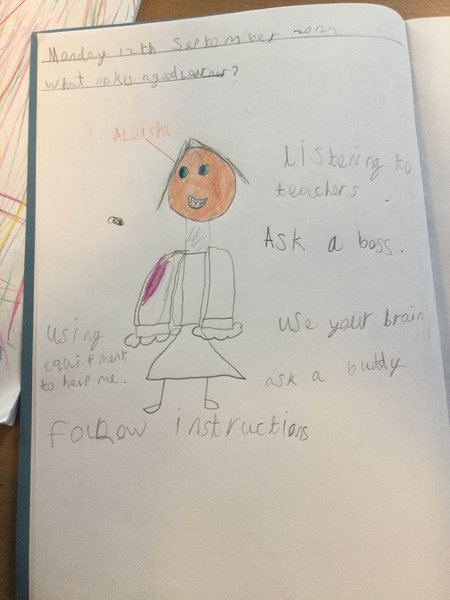 Monday 12th September 2022
What makes a good learner?
ALUISHA
Listening to
teachers.
Ask a boss.
use your brain
using
equipment
to help me.
ask a buddy
Follow instructions